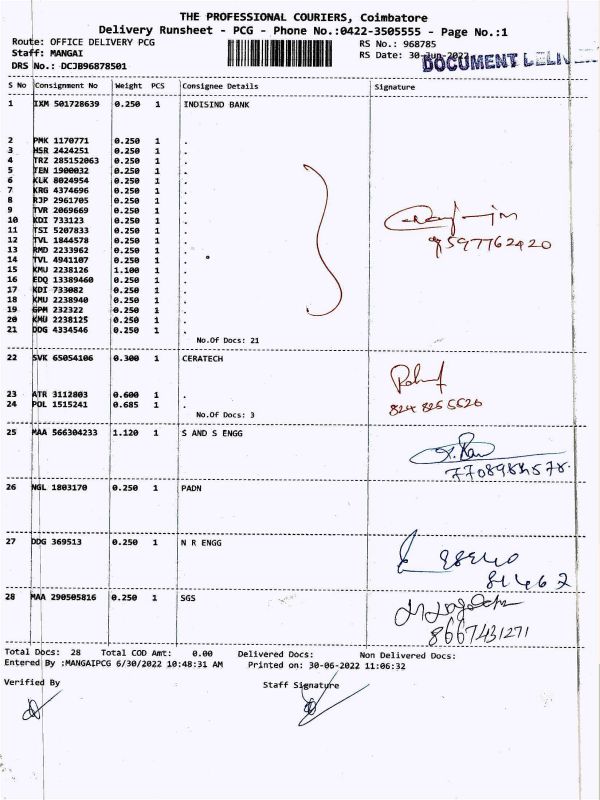 THE PROFESSIONAL COURIERS, Coimbatore
Delivery Runsheet - PCG - Phone No.:0422-3505555 - Page No.:1
Route: OFFICE DELIVERY PCG RS No.: 968785
Staff: MANGAI RS Date: 30-Jun-2022
DOCUMENT
DRS No.: DCJB96878501
S No Consignment No Weight PCS Consignee Details Signature
1 IXM 501728639 0.250 1 INDISIND BANK
2 PMK 1170771 0.250 1 .
3 HSR 2424251 0.250 1 .
4 TRZ 285152063 0.250 1 .
5 TEN 1900032 0.250 1 .
6 KLK 8024954 0.250 1 .
7 KRG 4374696 0.250 1 .
8 RJP 2961705 0.250 1 .
9 TVR 2069669 0.250 1 .
10 KDI 733123 0.250 1 .
11 TSI 5207833 0.250 1 .
12 TVL 1844578 0.250 1 .
13 RMD 2233962 0.250 1 .
14 TVL 4941107 0.250 1 .
15 KMU 2238126 1.100 1 .
16 EDQ 13389460 0.250 1 .
17 KDI 733082 0.250 1 .
18 KMU 2238940 0.250 1 .
19 GPM 232322 0.250 1 .
20 KMU 2238125 0.250 1 .
21 DDG 4334546 0.250 1 .
9597762420
No.Of Docs: 21
22 SVK 65054106 0.300 1 CERATECH
23 ATR 3112803 0.600 1 .
24 POL 1515241 0.685 1 .
No.Of Docs: 3
25 MAA 566304233 1.120 1 S AND S ENGG
26 NGL 1803170 0.250 1 PADN
27 DDG 369513 0.250 1 N R ENGG
28 MAA 290505816 0.250 1 SGS
8667431271
Total Docs: 28 Total COD Amt: 0.00 Delivered Docs: Non Delivered Docs:
Entered By :MANGAIPCG 6/30/2022 10:48:31 AM Printed on: 30-06-2022 11:06:32
Verified By Staff Signature